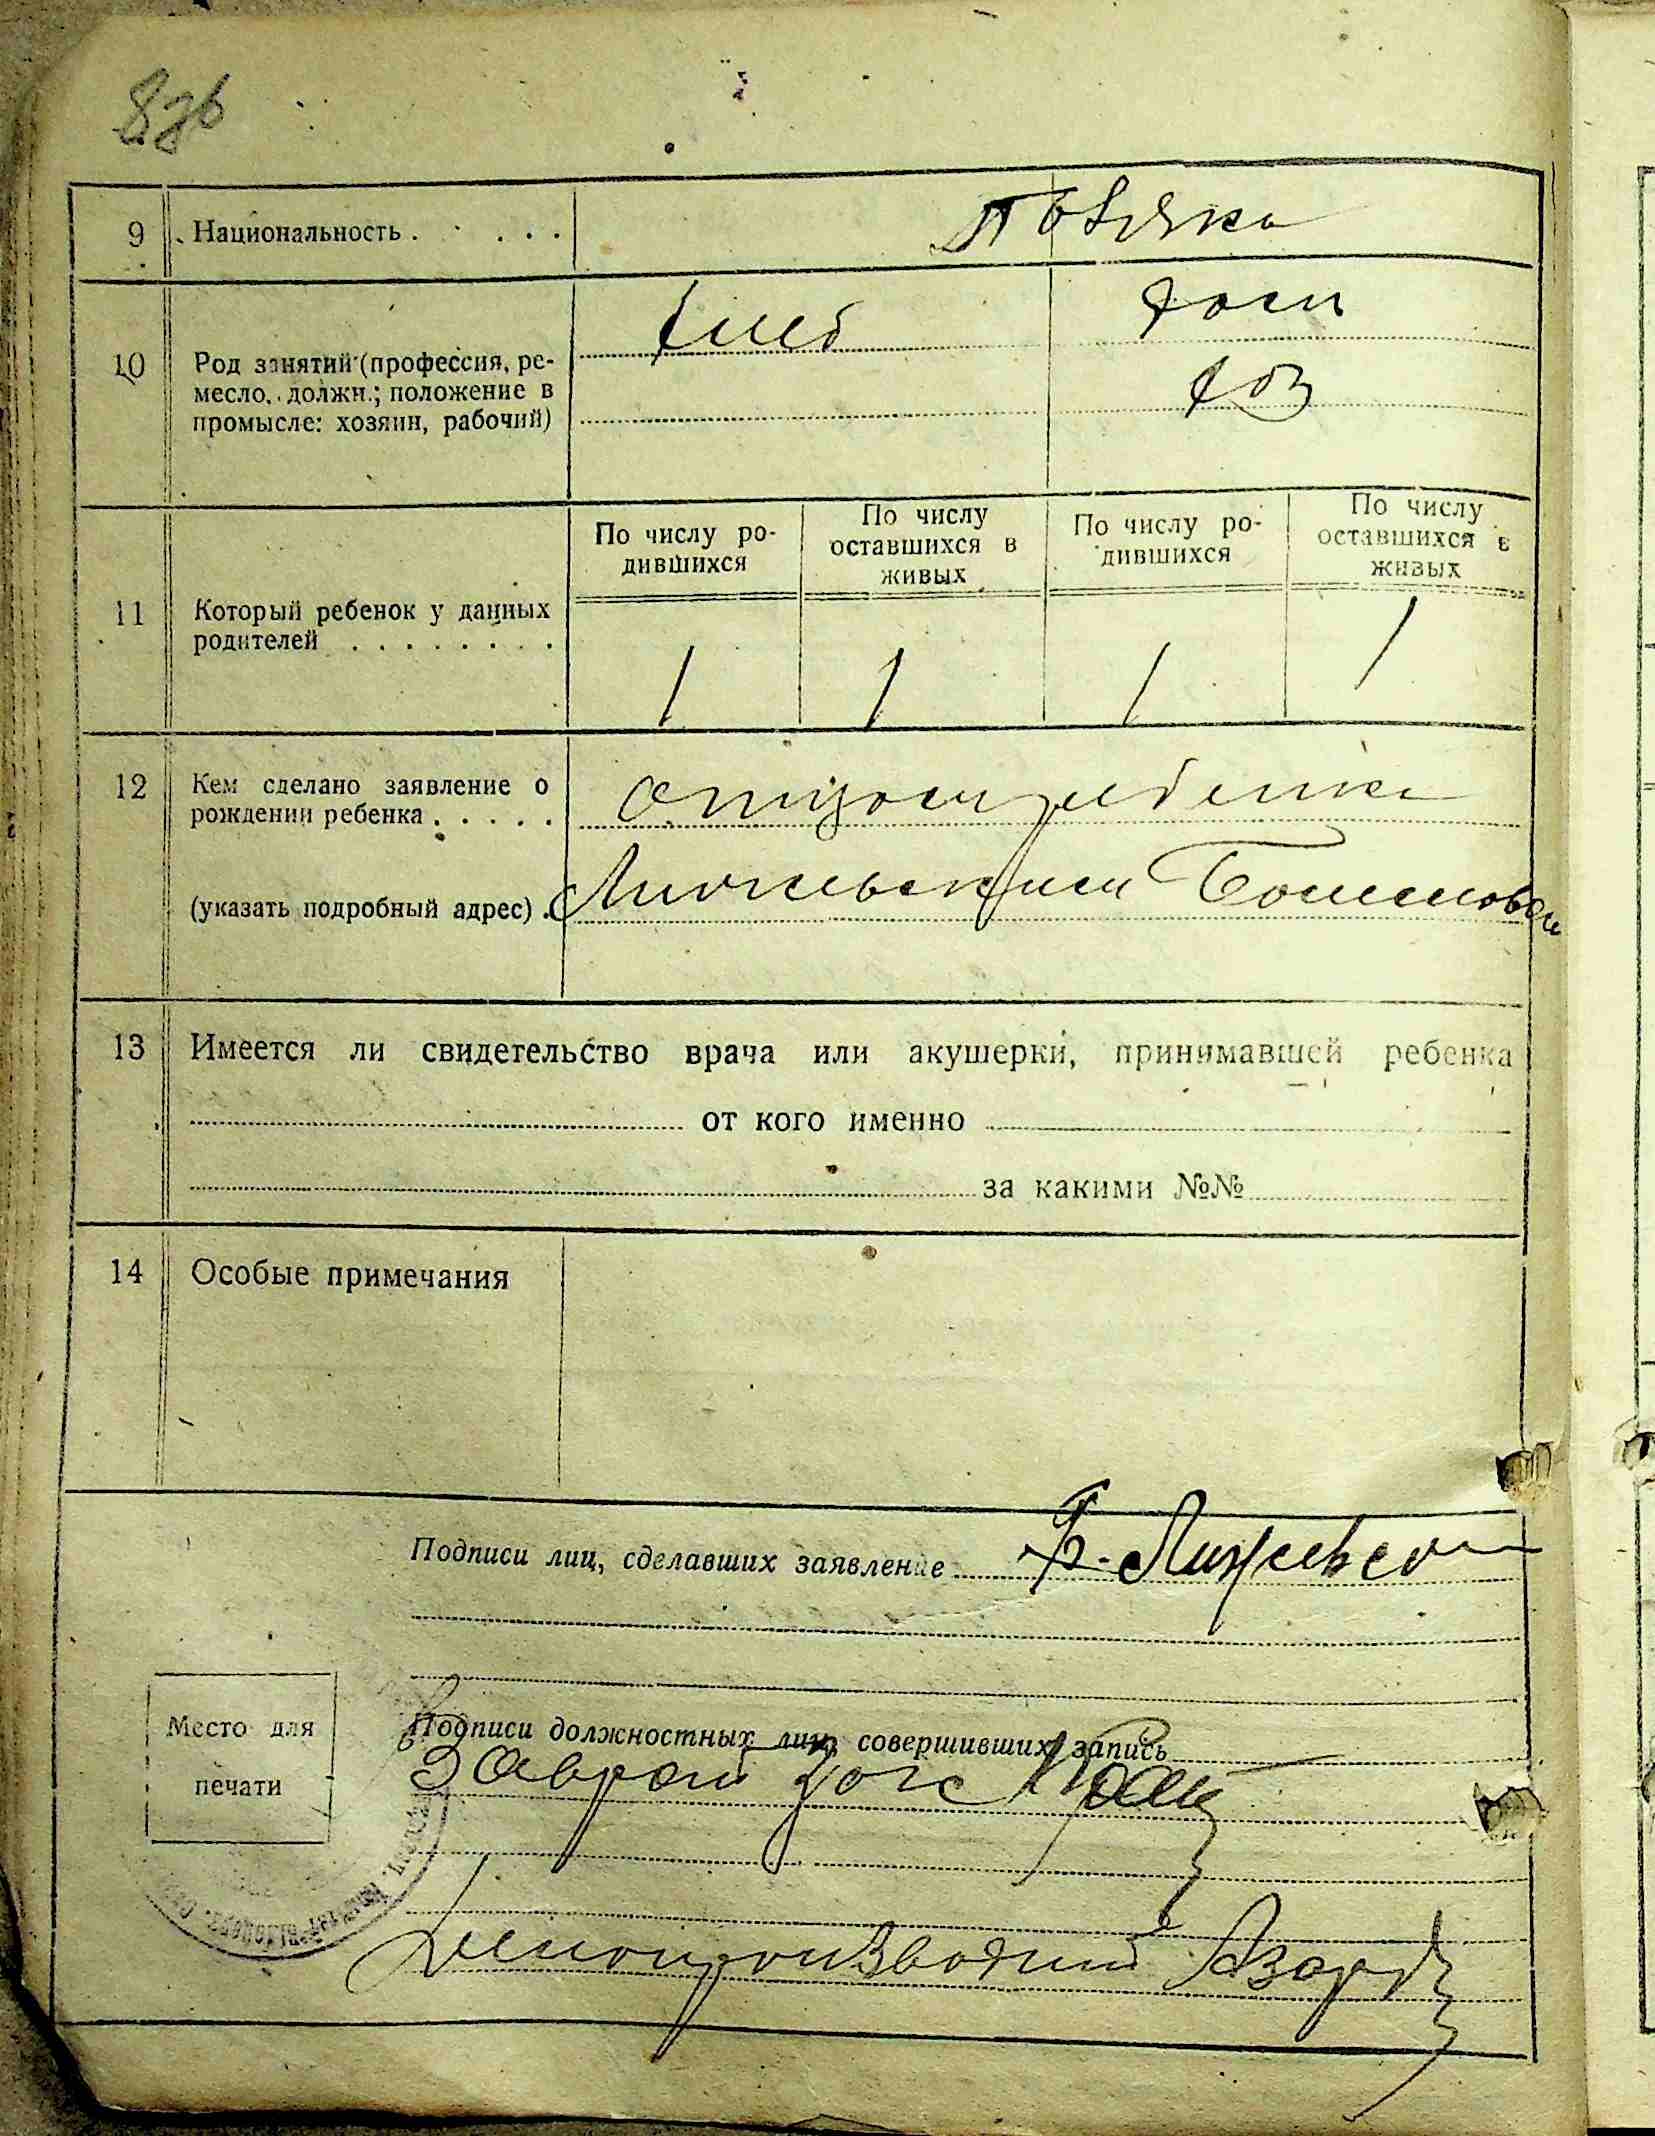 9 Национальность . . . . . Полячка
10 Род занятий (профессия, ре-
месло, должн.; положение в
промысле: хозяин, рабочий)
хлеб дом
хоз
11 Который ребенок у данных
родителей . . . . . . . .
По числу ро-
дившихся
По числу
оставшихся в
живых
По числу ро-
дившихся
По числу
оставшихся в
живых
1 1 1 1
12 Кем сделано заявление о
рождении ребенка . . . . . отцом ребенка
(указать подробный адрес) .
13 Имеется ли свидетельство врача или акушерки, принимавшей ребенка
от кого именно
за какими №№
14 Особые примечания
Подписи лиц, сделавших заявление
Место для
печати
Подписи должностных лиц, совершивших запись
Заврай загс
Делопроизводит